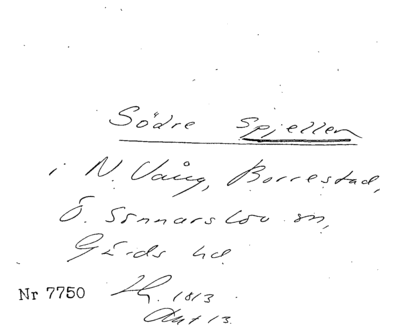 Södre Spjellen
i N. Vång, Borrestad,
Ö. Sönnarslöv sn,
Gärds hd.
Nr 7750
1813
Akt 13.